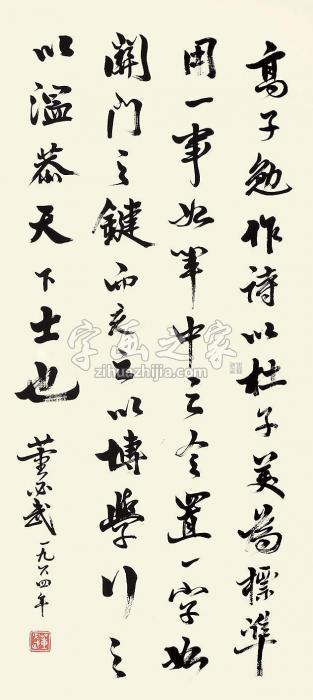 高子勉作詩以杜子美為標準
用一事如軍中之令置一字如
關門之鍵而充之以博學行之
以溫恭天下士也
董必武一九六四年
字画之家
zihuezhijia.com